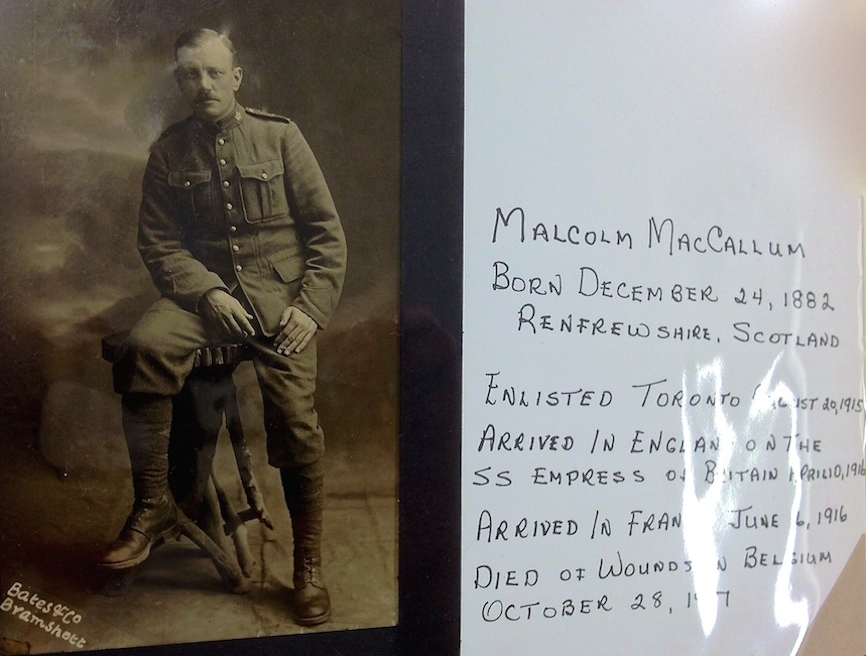 Bates & Co
Bramshott
MALCOLM MACCALLUM
BORN DECEMBER 24, 1882
RENFREWSHIRE, SCOTLAND
ENLISTED TORONTO 20, 1915
ARRIVED IN ENGLAND ON THE
SS EMPRESS OF BRITAIN APRIL 10, 1916
ARRIVED IN FRANCE JUNE 6, 1916
DIED OF WOUNDS IN BELGIUM
OCTOBER 28,